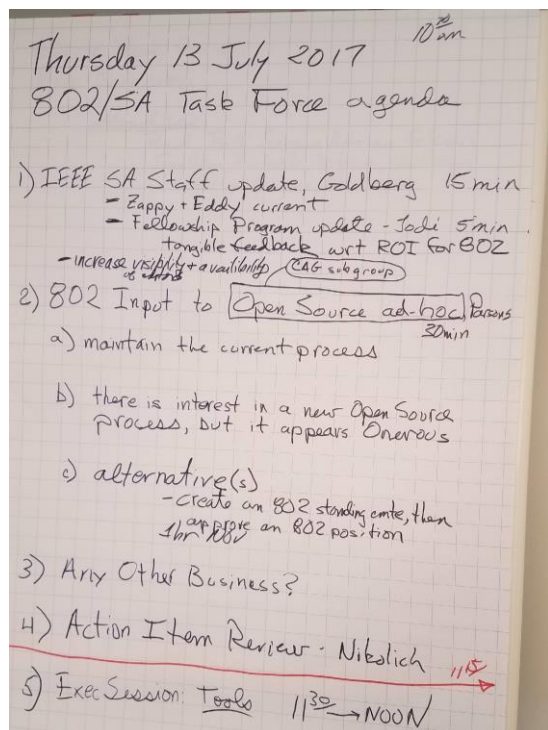 10 30 am
Thursday 13 July 2017
802/SA Task Force agenda
1) IEEE SA Staff update, Goldberg 15min
- Zappy + Eddy current
- Fellowship Program update - Jodi 5min.
tangible feedback wrt ROI for 802
- increase visibility + availability
CAG subgroup
2) 802 Input to Open Source ad-hoc, Parsons
30min
a) maintain the current process
b) there is interest in a new Open Source
process, but it appears Onerous
c) alternative(s)
- create an 802 standing cmte, then
approve an 802 position
3) Any Other Business?
4) Action Item Review - Nikolich
11 15
5) Exec Session: Tools 11 30 → NOON